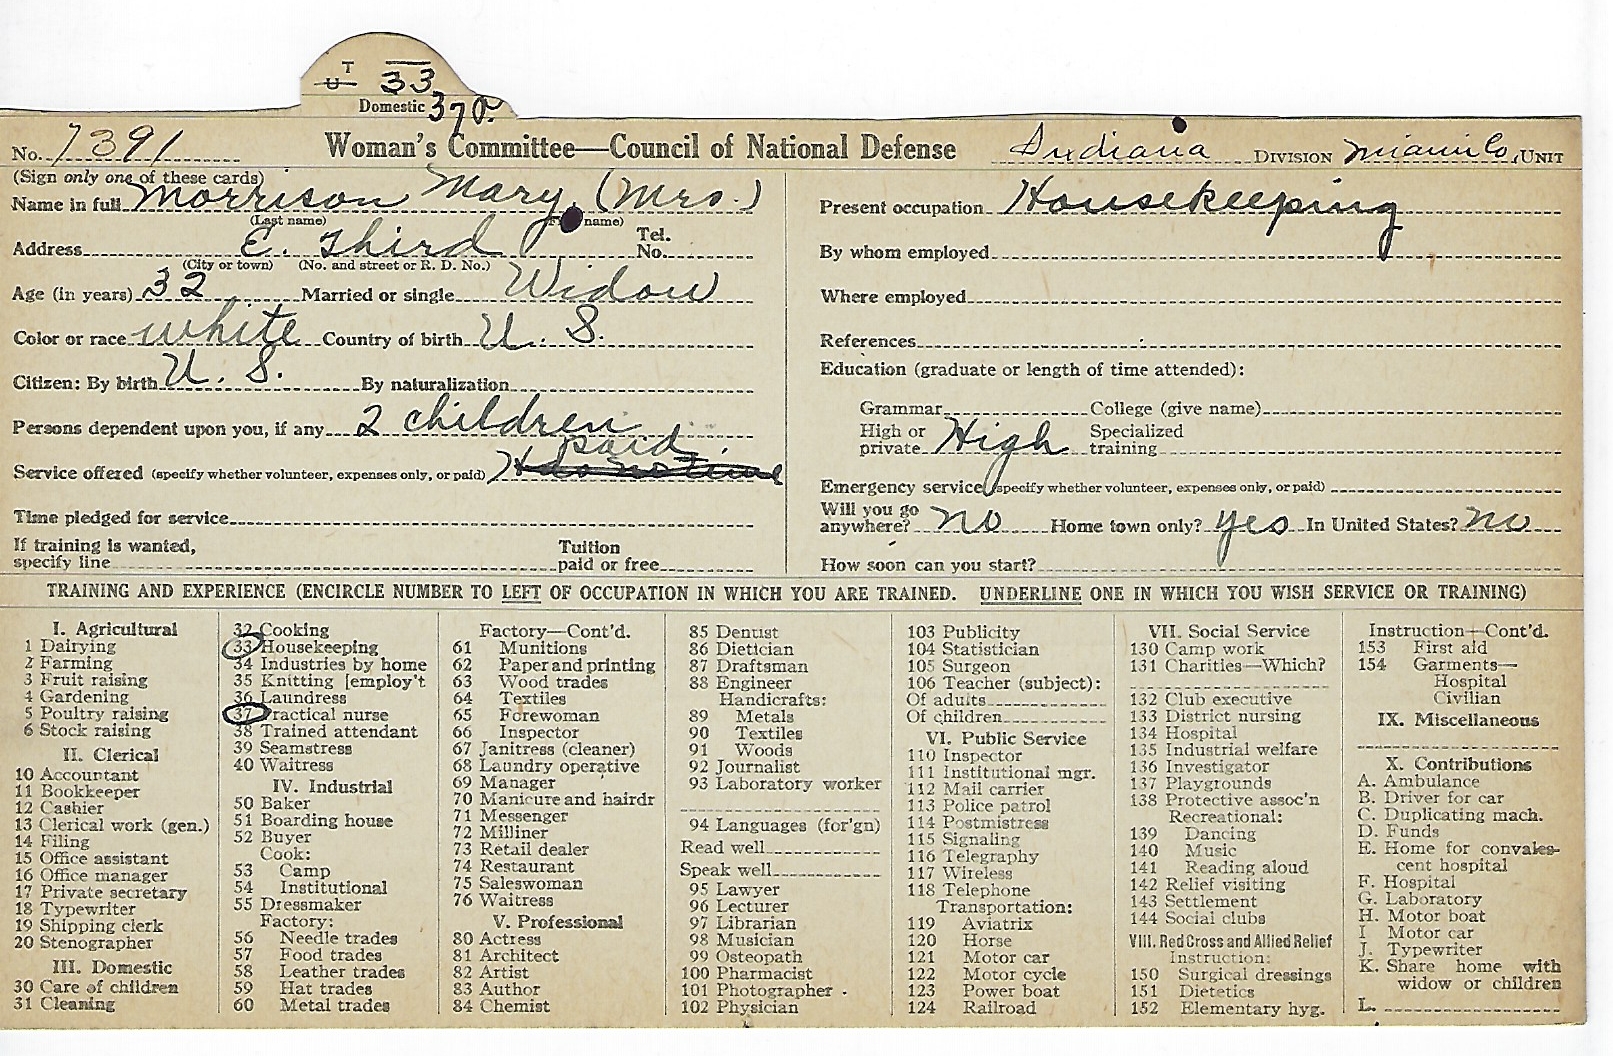 T
U 33
Domestic 37 or
No. 7391 Woman's Committee—Council of National Defense Indiana DIVISION Miami Co. UNIT
(Sign only one of these cards)
Name in full Morrison Mary (Mrs.)
(Last name) name)
Address E. Third Tel. No.
(City or town) (No. and street or R. D. No.)
Age (in years) 32 Married or single Widow
Color or race white Country of birth U. S.
Citizen: By birth U. S. By naturalization
Persons dependent upon you, if any 2 children
paid
Service offered (specify whether volunteer, expenses only, or paid) Has no time
Time pledged for service
If training is wanted, specify line Tuition paid or free
Present occupation Housekeeping
By whom employed
Where employed
References
Education (graduate or length of time attended):
Grammar College (give name)
High or private High Specialized training
Emergency service (specify whether volunteer, expenses only, or paid)
Will you go anywhere? no Home town only? yes In United States? no
How soon can you start?
TRAINING AND EXPERIENCE (ENCIRCLE NUMBER TO LEFT OF OCCUPATION IN WHICH YOU ARE TRAINED. UNDERLINE ONE IN WHICH YOU WISH SERVICE OR TRAINING)
I. Agricultural
1 Dairying
2 Farming
3 Fruit raising
4 Gardening
5 Poultry raising
6 Stock raising
II. Clerical
10 Accountant
11 Bookkeeper
12 Cashier
13 Clerical work (gen.)
14 Filing
15 Office assistant
16 Office manager
17 Private secretary
18 Typewriter
19 Shipping clerk
20 Stenographer
III. Domestic
30 Care of children
31 Cleaning
32 Cooking
33 Housekeeping
34 Industries by home
35 Knitting [employ't
36 Laundress
37 Practical nurse
38 Trained attendant
39 Seamstress
40 Waitress
IV. Industrial
50 Baker
51 Boarding house
52 Buyer
Cook:
53 Camp
54 Institutional
55 Dressmaker
Factory:
56 Needle trades
57 Food trades
58 Leather trades
59 Hat trades
60 Metal trades
Factory—Cont'd.
61 Munitions
62 Paper and printing
63 Wood trades
64 Textiles
65 Forewoman
66 Inspector
67 Janitress (cleaner)
68 Laundry operative
69 Manager
70 Manicure and hairdr
71 Messenger
72 Milliner
73 Retail dealer
74 Restaurant
75 Saleswoman
76 Waitress
V. Professional
80 Actress
81 Architect
82 Artist
83 Author
84 Chemist
85 Dentist
86 Dietician
87 Draftsman
88 Engineer
Handicrafts:
89 Metals
90 Textiles
91 Woods
92 Journalist
93 Laboratory worker
94 Languages (for'gn)
Read well
Speak well
95 Lawyer
96 Lecturer
97 Librarian
98 Musician
99 Osteopath
100 Pharmacist
101 Photographer
102 Physician
103 Publicity
104 Statistician
105 Surgeon
106 Teacher (subject):
Of adults
Of children
VI. Public Service
110 Inspector
111 Institutional mgr.
112 Mail carrier
113 Police patrol
114 Postmistress
115 Signaling
116 Telegraphy
117 Wireless
118 Telephone
Transportation:
119 Aviatrix
120 Horse
121 Motor car
122 Motor cycle
123 Power boat
124 Railroad
VII. Social Service
130 Camp work
131 Charities—Which?
132 Club executive
133 District nursing
134 Hospital
135 Industrial welfare
136 Investigator
137 Playgrounds
138 Protective assoc'n
Recreational:
139 Dancing
140 Music
141 Reading aloud
142 Relief visiting
143 Settlement
144 Social clubs
VIII. Red Cross and Allied Relief
Instruction:
150 Surgical dressings
151 Dietetics
152 Elementary hyg.
Instruction—Cont'd.
153 First aid
154 Garments—
Hospital
Civilian
IX. Miscellaneous
X. Contributions
A. Ambulance
B. Driver for car
C. Duplicating mach.
D. Funds
E. Home for convales-
cent hospital
F. Hospital
G. Laboratory
H. Motor boat
I Motor car
J. Typewriter
K. Share home with
widow or children
L.